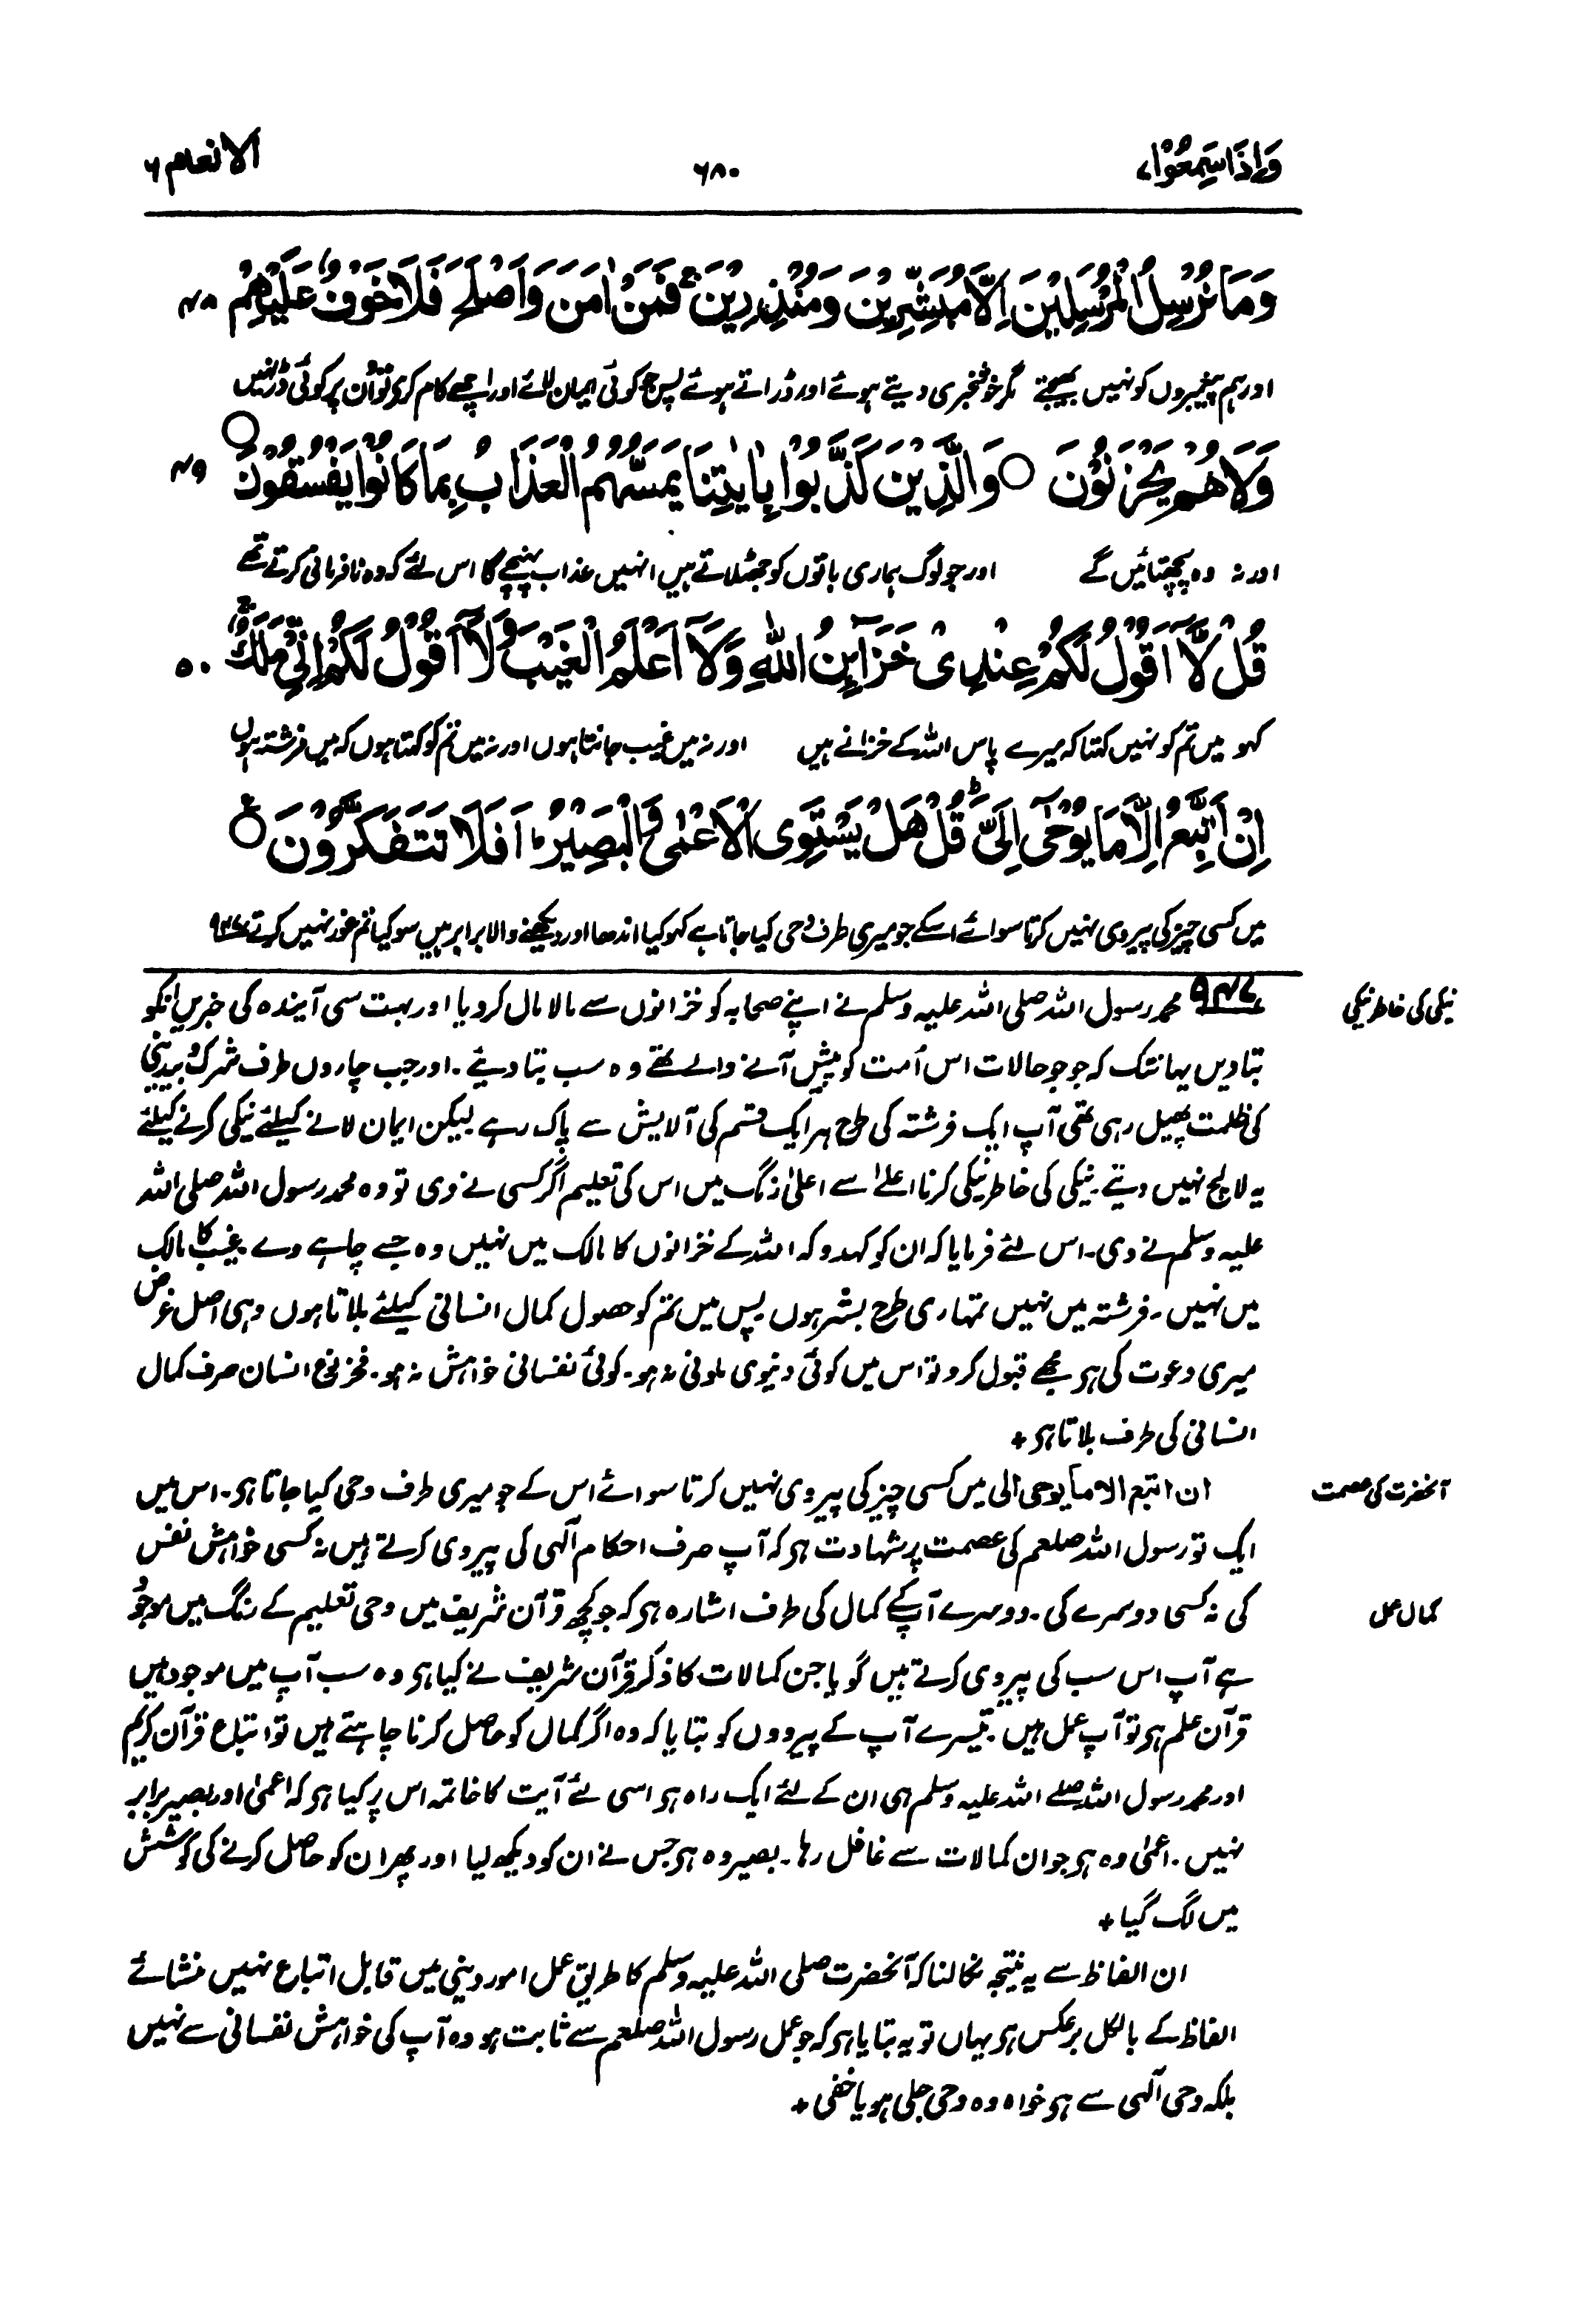 وَاِذَا سَمِعُوْا ۷
۶۸۰
الانعام ۶
وَمَا نُرْسِلُ الْمُرْسَلِيْنَ اِلَّا مُبَشِّرِيْنَ وَمُنْذِرِيْنَ ۚ فَمَنْ اٰمَنَ وَاَصْلَحَ فَلَا خَوْفٌ عَلَيْهِمْ ۴۸
اور ہم پیغمبروں کو نہیں بھیجتے مگر خوشخبری دیتے ہوئے اور ڈراتے ہوئے پس جو کوئی ایمان لائے اور اچھے کام کرے تو اُن پر کوئی ڈر نہیں
وَلَا هُمْ يَحْزَنُوْنَ ○ وَالَّذِيْنَ كَذَّبُوْا بِاٰيٰتِنَا يَمَسُّهُمُ الْعَذَابُ بِمَا كَانُوْا يَفْسُقُوْنَ ○ ۴۹
اور نہ وہ پچھتائیں گے اور جو لوگ ہماری باتوں کو جھٹلاتے ہیں انہیں عذاب پہنچے گا اس لئے کہ وہ نافرمانی کرتے تھے
قُلْ لَّاۤ اَقُوْلُ لَكُمْ عِنْدِيْ خَزَآئِنُ اللّٰهِ وَلَاۤ اَعْلَمُ الْغَيْبَ وَلَاۤ اَقُوْلُ لَكُمْ اِنِّيْ مَلَكٌ ۚ ۵۰
کہو میں تم کو نہیں کہتا کہ میرے پاس اللہ کے خزانے ہیں اور نہ میں غیب جانتا ہوں اور نہ میں تم کو کہتا ہوں کہ میں فرشتہ ہوں
اِنْ اَتَّبِعُ اِلَّا مَا يُوْحٰۤى اِلَيَّ ؕ قُلْ هَلْ يَسْتَوِى الْاَعْمٰى وَالْبَصِيْرُ ؕ اَفَلَا تَتَفَكَّرُوْنَ ○ ع
میں کسی چیز کی پیروی نہیں کرتا سوائے اسکے جو میری طرف وحی کیا جاتا ہے کہو کیا اندھا اور دیکھنے والا برابر ہیں سو کیا تم غور نہیں کرتے ۹۴۷
نیکی کی خاطر نیکی
۹۴۷ محمد رسول اللہ صلی اللہ علیہ وسلم نے اپنے صحابہ کو خزانوں سے مالا مال کر دیا اور بہت سی آیندہ کی خبریں انکو
بتا دیں یہانتک کہ جو جو حالات اس اُمت کو پیش آنے والے تھے وہ سب بتا دیئے۔ اور جب چاروں طرف شرک و بیدینی
کی ظلمت پھیل رہی تھی آپ ایک فرشتہ کی طرح ہر ایک قسم کی آلایش سے پاک رہے لیکن ایمان لانے کیلئے نیکی کرنے کیلئے
یہ لالچ نہیں دیتے۔ نیکی کی خاطر نیکی کرنا اعلےٰ سے اعلیٰ رنگ میں اس کی تعلیم اگر کسی نے دی تو وہ محمد رسول اللہ صلی اللہ
علیہ وسلم نے دی۔ اس لئے فرمایا کہ ان کو کہدو کہ اللہ کے خزانوں کا مالک میں نہیں وہ جسے چاہے دے۔ غیب کا مالک
میں نہیں۔ فرشتہ میں نہیں تمہاری طرح بشر ہوں پس میں تم کو حصول کمال انسانی کیلئے بلاتا ہوں وہی اصل غرض
میری دعوت کی ہے مجھے قبول کرو تو اس میں کوئی دنیوی ملونی نہ ہو۔ کوئی نفسانی خواہش نہ ہو۔ فخر نوع انسان صرف کمال
انسانی کی طرف بلاتا ہے +
آنحضرت کی عصمت
ان اتبع الا ما یوحی الی میں کسی چیز کی پیروی نہیں کرتا سوائے اس کے جو میری طرف وحی کیا جاتا ہے۔ اس میں
ایک تو رسول اللہ صلعم کی عصمت پر شہادت ہے کہ آپ صرف احکام آلٰہی کی پیروی کرتے ہیں نہ کسی خواہش نفس
کمال عمل
کی نہ کسی دوسرے کی۔ دوسرے آپکے کمال کی طرف اشارہ ہے کہ جو کچھ قرآن شریف میں وحی تعلیم کے رنگ میں موجود
ہے آپ اس سب کی پیروی کرتے ہیں گویا جن کمالات کا ذکر قرآن شریف نے کیا ہے وہ سب آپ میں موجود ہیں
قرآن علم ہے تو آپ عمل ہیں۔ تیسرے آپ کے پیرووں کو بتایا کہ وہ اگر کمال کو حاصل کرنا چاہتے ہیں تو اتباع قرآن کریم
اور محمد رسول اللہ صلے اللہ علیہ وسلم ہی ان کے لئے ایک راہ ہے اسی لئے آیت کا خاتمہ اس پر کیا ہے کہ اعمیٰ اور بصیر برابر
نہیں۔ اعمیٰ وہ ہے جو ان کمالات سے غافل رہا۔ بصیر وہ ہے جس نے ان کو دیکھ لیا اور پھر ان کو حاصل کرنے کی کوشش
میں لگ گیا +
ان الفاظ سے یہ نتیجہ نکالنا کہ آنحضرت صلی اللہ علیہ وسلم کا طریق عمل امور دینی میں قابل اتباع نہیں منشائے
الفاظ کے بالکل برعکس ہے یہاں تو یہ بتایا ہے کہ جو عمل رسول اللہ صلعم سے ثابت ہو وہ آپ کی خواہش نفسانی سے نہیں
بلکہ وحی آلٰہی سے ہے خواہ وہ وحی جلی ہو یا خفی +